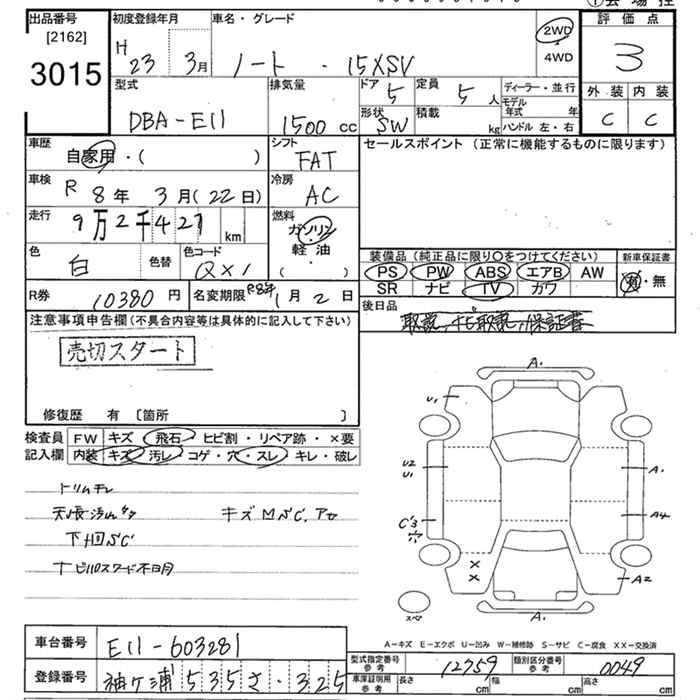 出品番号 [2162] 3015
初度登録年月 H 23 3月
車名・グレード ノート ・ 15XSV
2WD ・ 4WD
評価点 3
外装 C 内装 C
型式 DBA-E11
排気量 1500 cc
ドア 5 定員 5 人
形状 SW 積載 kg
ディーラー・並行
モデル年式 年
ハンドル 左・右
車歴 自家用・( )
シフト FAT
車検 R 8年 3月(22日)
冷房 AC
走行 9万2千427 km
燃料 ガソリン・軽油・( )
色 白 色替 色コード QX1
R券 10380円 名変期限 R8年 1月 2日
セールスポイント(正常に機能するものに限ります)
装備品(純正品に限り○をつけてください)
PS PW ABS エアB AW
SR ナビ TV カワ
新車保証書 有・無
後日品 取説、ナビ取説、保証書
注意事項申告欄(不具合内容等は具体的に記入して下さい)
売切スタート
修復歴 有 〔箇所 〕
検査員記入欄
FW キズ・飛石・ヒビ割・リペア跡・×要
内装 キズ・汚レ・コゲ・穴・スレ・キレ・破レ
トリムキレ
天張汚れ キズ
下廻SC
ナビパスワード不明
A.
U1
U2
U1
C'3
穴
×
×
A.
A4
A2
スペア
A.
A-キズ E-エクボ U-凹み W-補修跡 S-サビ C-腐食 XX-交換済
車台番号 E11-603281
登録番号 袖ケ浦 535 さ・325
型式指定番号 参考 12759 類別区分番号 参考 0049
車庫証明用 参考 長さ cm 幅 cm 高さ cm